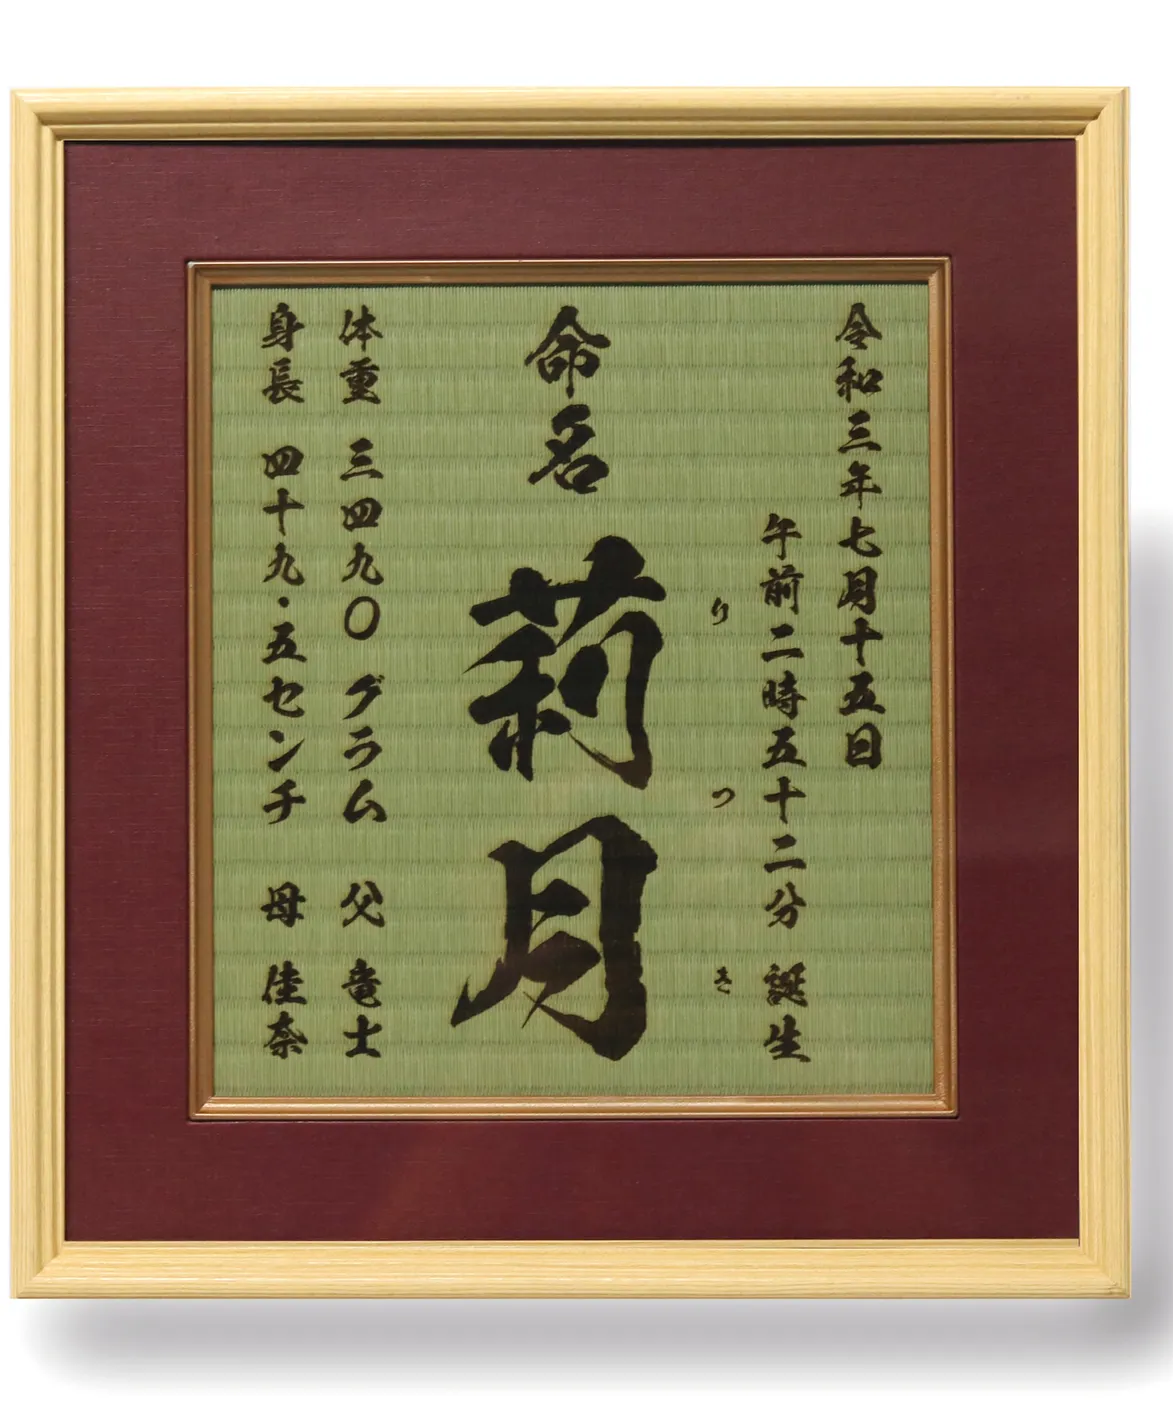 令和三年七月十五日
午前二時五十二分 誕生
りつき
命名 莉月
体重 三四九〇グラム 父 竜士
身長 四十九・五センチ 母 佳奈